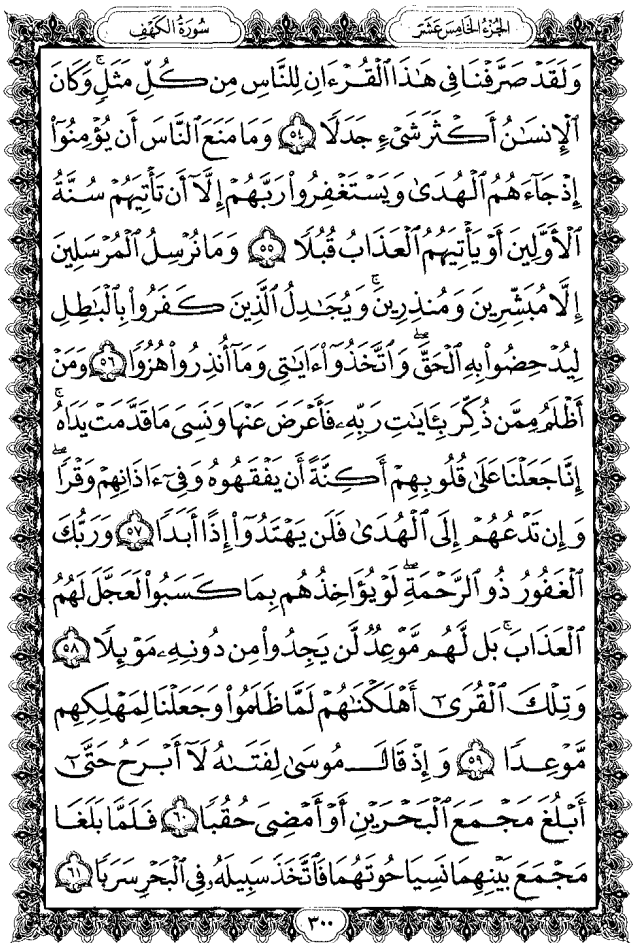 الجزء الخامس عشر
سورة الكهف
وَلَقَدْ صَرَّفْنَا فِى هَٰذَا ٱلْقُرْءَانِ لِلنَّاسِ مِن كُلِّ مَثَلٍۚ وَكَانَ
ٱلْإِنسَٰنُ أَكْثَرَ شَىْءٍ جَدَلًا ٥٤ وَمَا مَنَعَ ٱلنَّاسَ أَن يُؤْمِنُوٓا۟
إِذْ جَآءَهُمُ ٱلْهُدَىٰ وَيَسْتَغْفِرُوا۟ رَبَّهُمْ إِلَّآ أَن تَأْتِيَهُمْ سُنَّةُ
ٱلْأَوَّلِينَ أَوْ يَأْتِيَهُمُ ٱلْعَذَابُ قُبُلًا ٥٥ وَمَا نُرْسِلُ ٱلْمُرْسَلِينَ
إِلَّا مُبَشِّرِينَ وَمُنذِرِينَۚ وَيُجَٰدِلُ ٱلَّذِينَ كَفَرُوا۟ بِٱلْبَٰطِلِ
لِيُدْحِضُوا۟ بِهِ ٱلْحَقَّۖ وَٱتَّخَذُوٓا۟ ءَايَٰتِى وَمَآ أُنذِرُوا۟ هُزُوًا ٥٦ وَمَنْ
أَظْلَمُ مِمَّن ذُكِّرَ بِـَٔايَٰتِ رَبِّهِۦ فَأَعْرَضَ عَنْهَا وَنَسِىَ مَا قَدَّمَتْ يَدَاهُۚ
إِنَّا جَعَلْنَا عَلَىٰ قُلُوبِهِمْ أَكِنَّةً أَن يَفْقَهُوهُ وَفِىٓ ءَاذَانِهِمْ وَقْرًاۖ
وَإِن تَدْعُهُمْ إِلَى ٱلْهُدَىٰ فَلَن يَهْتَدُوٓا۟ إِذًا أَبَدًا ٥٧ وَرَبُّكَ
ٱلْغَفُورُ ذُو ٱلرَّحْمَةِۖ لَوْ يُؤَاخِذُهُم بِمَا كَسَبُوا۟ لَعَجَّلَ لَهُمُ
ٱلْعَذَابَۚ بَل لَّهُم مَّوْعِدٌ لَّن يَجِدُوا۟ مِن دُونِهِۦ مَوْئِلًا ٥٨
وَتِلْكَ ٱلْقُرَىٰٓ أَهْلَكْنَٰهُمْ لَمَّا ظَلَمُوا۟ وَجَعَلْنَا لِمَهْلِكِهِم
مَّوْعِدًا ٥٩ وَإِذْ قَالَ مُوسَىٰ لِفَتَىٰهُ لَآ أَبْرَحُ حَتَّىٰٓ
أَبْلُغَ مَجْمَعَ ٱلْبَحْرَيْنِ أَوْ أَمْضِىَ حُقُبًا ٦٠ فَلَمَّا بَلَغَا
مَجْمَعَ بَيْنِهِمَا نَسِيَا حُوتَهُمَا فَٱتَّخَذَ سَبِيلَهُۥ فِى ٱلْبَحْرِ سَرَبًا ٦١
٣٠٠